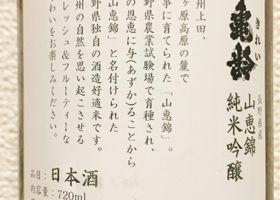 亀齢
きれい
長野県産
山恵錦
純米吟醸
州上田、
ヶ原高原の麓で
事に育てられた「山恵錦」。
野県農業試験場で育種され、
の恩恵に与(あずか)ることから
恵錦」と名付けられた
野県独自の酒造好適米です。
州の自然を思い起こさせる
レッシュ&フルーティーな
わいをお楽しみください。
日本酒
容量：720ml